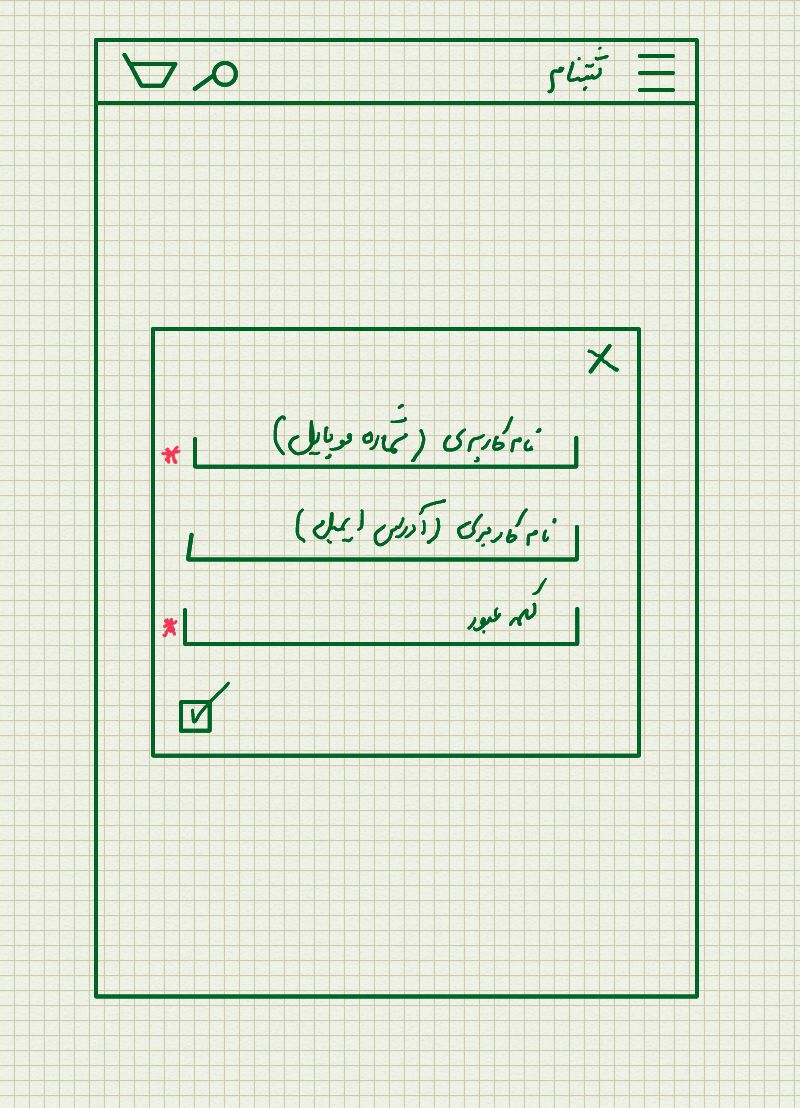 ثبتنام
نام کاربری (شماره موبایل)
*
نام کاربری (آدرس ایمیل)
کلمه عبور
*